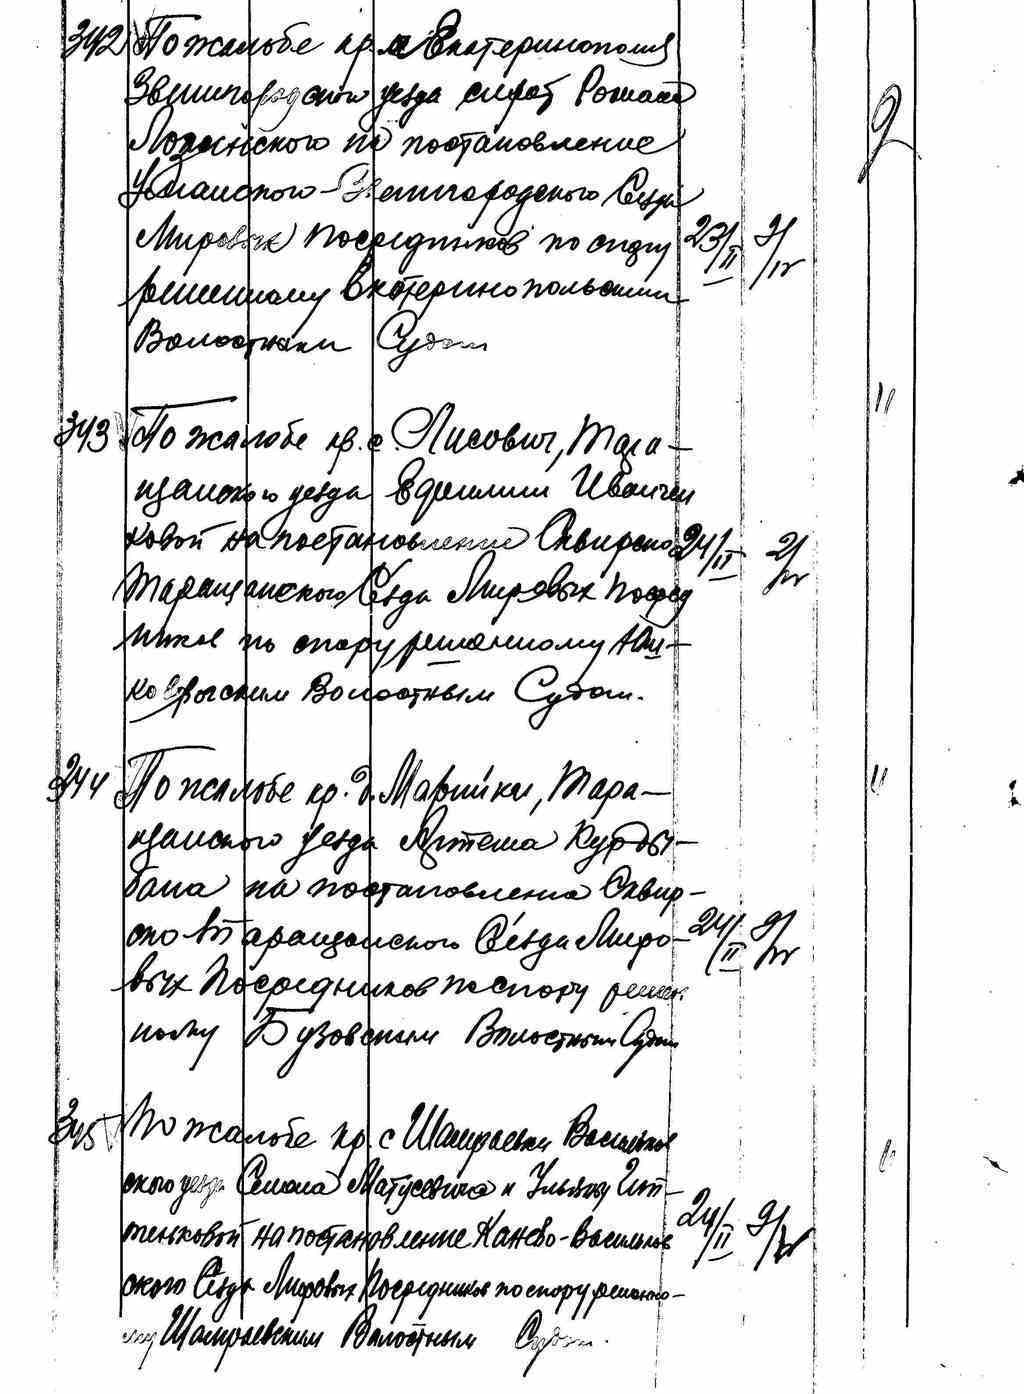 342 По жалобе кр. с Екатеринополя
Звенигородского уезда сирот Романа
Лозинского на постановление
Уманского-Звенигородского Сезда
Мировых Посредников по спору 23/II 9/IV
решенному Екатеринопольским
Волостным Судом
343 По жалобе кр. с. Лисович, Тара-
щанского уезда Ефимии Иванчен
ковой на постановление Сквирско 24/II 9/IV
Таращанского Сезда Мировых Посред
ников по спору решенному
Волостным Судом.
344 По жалобе кр. д. Марийки, Тара-
щанского уезда Артема Курды-
бана на постановление Сквир-
ско Таращанского Сезда Миро- 24/II 9/IV
вых Посредников по спору решен
ному Бузовским Волостным Судом
345 По жалобе кр. с Шамраевки Васильков
ского уезда Семена Матусевича и
тенковой на постановление Канево-Васильков 24/II 9/IV
ского Сезда Мировых Посредников по спору решенно-
му Шамраевским Волостным Судом.